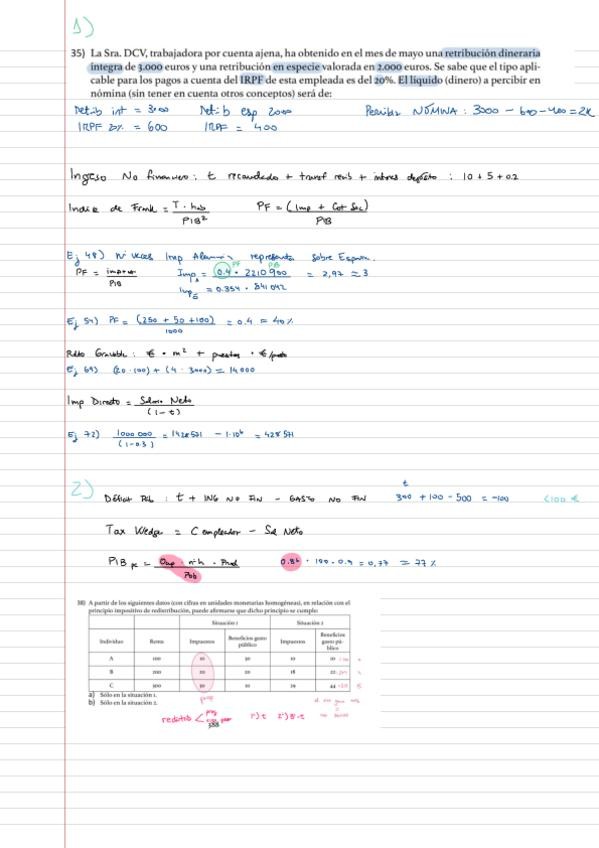 1)
35) La Sra. DCV, trabajadora por cuenta ajena, ha obtenido en el mes de mayo una retribución dineraria
íntegra de 3.000 euros y una retribución en especie valorada en 2.000 euros. Se sabe que el tipo apli-
cable para los pagos a cuenta del IRPF de esta empleada es del 20%. El líquido (dinero) a percibir en
nómina (sin tener en cuenta otros conceptos) será de:
Retrib int = 3000 Retrib esp 2000 Percibir NÓMINA : 3000 - 600 - 400 = 2K
IRPF 20% = 600 IRPF = 400
Ingreso No financiero : t recaudado + transf + interes deposito : 10 + 5 + 0.2
Indice de Frank = T · hab / PIB² PF = (Imp + Cot Soc) / PIB
Ej 48) nº veces Imp Alemania representa sobre España.
PF = imp + cot / PIB Imp A = 0.4 · 2210900 / Imp E = 0.354 · 841042 = 2,97 ≃ 3
PF PIB
Ej 54) PF = (250 + 50 + 100) / 1000 = 0.4 = 40%
Rdto Gravable : € · m² + puestos · €/puesto
Ej 69) (20 · 100) + (4 · 3000) = 14000
Imp Directo = Salario Neto / (1 - t)
Ej 72) 1000.000 / (1-0.3) = 1428571 - 1·10⁶ = 428571
2)
Déficit Pub : t + ING NO FIN - GASTO NO FIN 300 + 100 - 500 = -100 <100 €
t
Tax Wedge = C empleador - Sal Neto
PIB pc = Ocup · nº h · Prod / Pob 0.86 · 100 · 0.9 = 0,77 = 77%
38) A partir de los siguientes datos (con cifras en unidades monetarias homogéneas), en relación con el
principio impositivo de redistribución, puede afirmarse que dicho principio se cumple:
Situación 1 Situación 2
Individuo Renta Impuestos Beneficios gasto público Impuestos Beneficios gasto público
A 100 10 20 10
B 200 20 20 18 22
C 300 30 20 24 44
a) Sólo en la situación 1.
b) Sólo en la situación 2.
prog
redistrib < prog
388
1º) t 2º) B-t